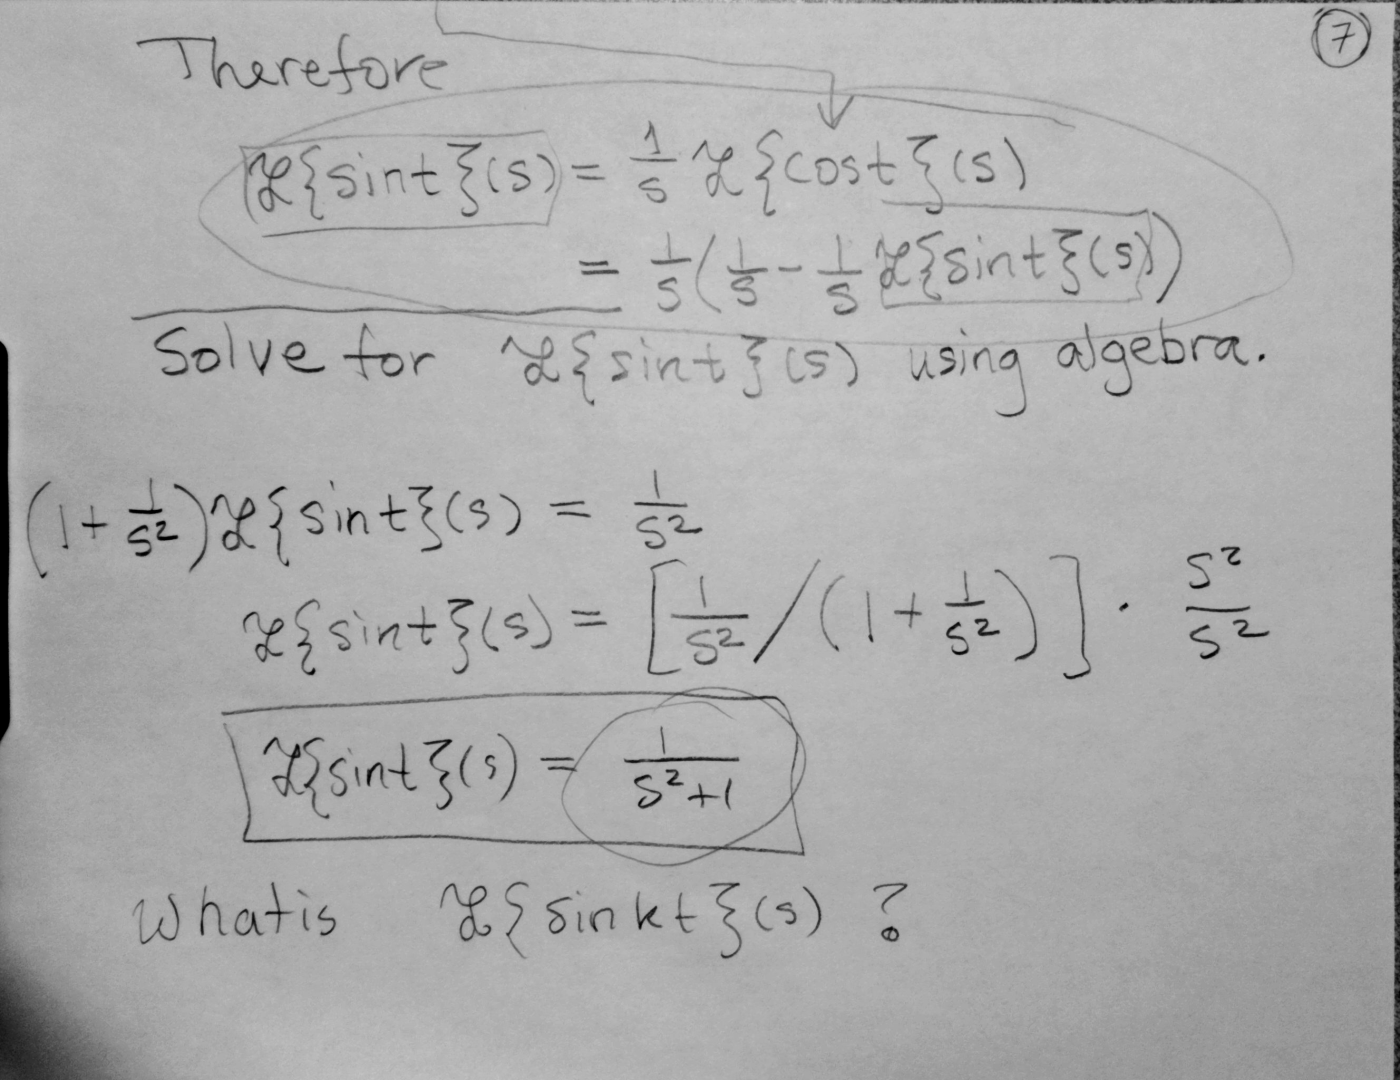 7
Therefore
ℒ{sint}(s) = 1/s ℒ{cost}(s)
= 1/s(1/s - 1/s ℒ{sint}(s))
Solve for ℒ{sint}(s) using algebra.
(1+1/s²)ℒ{sint}(s) = 1/s²
ℒ{sint}(s) = [1/s²/(1+1/s²)] · s²/s²
ℒ{sint}(s) = 1/(s²+1)
What is ℒ{sinkt}(s) ?